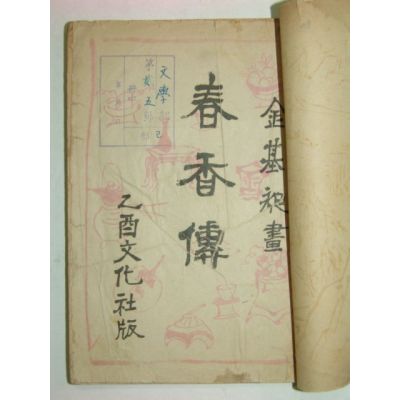 金基昶畫
春香傳
乙酉文化社版
文學
第 五